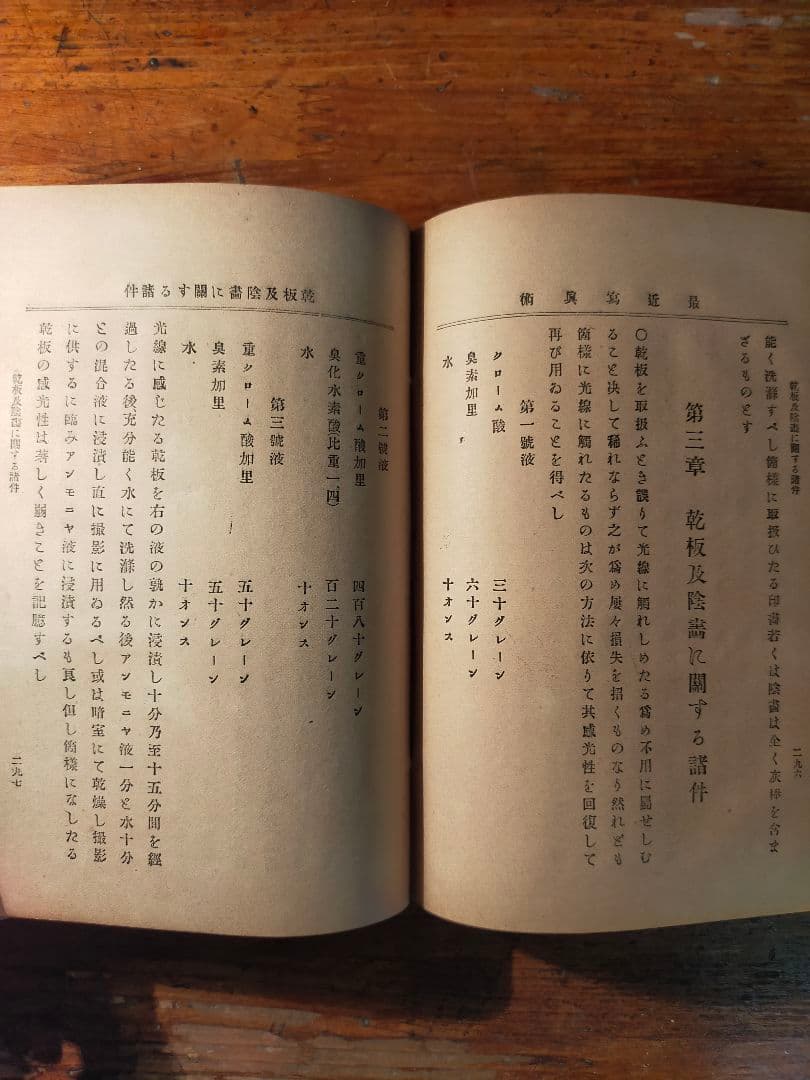 最近寫眞術
乾板及陰畵に關する諸件
二九六
能く洗滌すべし斯樣に取扱ひたる印畵若くは陰畵は全く灰 を含ま
ざるものとす
第三章 乾板及陰畵に關する諸件
〇乾板を取扱ふとき誤りて光線に觸れしめたる爲め不用に屬せしむ
ること决して稀れならず之が爲め屢々損失を招くものなり然れども
斯樣に光線に觸れたるものは次の方法に依りて其感光性を回復して
再び用ゐることを得べし
第一號液
クローム酸 三十グレーン
臭素加里 六十グレーン
水 十オンス
乾板及陰畵に關する諸件
第二號液
重クローム酸加里 四百八十グレーン
臭化水素酸(比重一四) 百二十グレーン
水 十オンス
第三號液
重クローム酸加里 五十グレーン
臭素加里 五十グレーン
水 十オンス
光線に感じたる乾板を右の液の孰かに浸漬し十分乃至十五分間を經
過したる後充分能く水にて洗滌し然る後アンモニヤ液一分と水十分
との混合液に浸漬し直に撮影に用ゐるべし或は暗室にて乾燥し撮影
に供するに臨みアンモニヤ液に浸漬するも良し但し斯樣になしたる
乾板の感光性は著しく弱きことを記臆すべし
乾板及陰畵に關する諸件
二九七